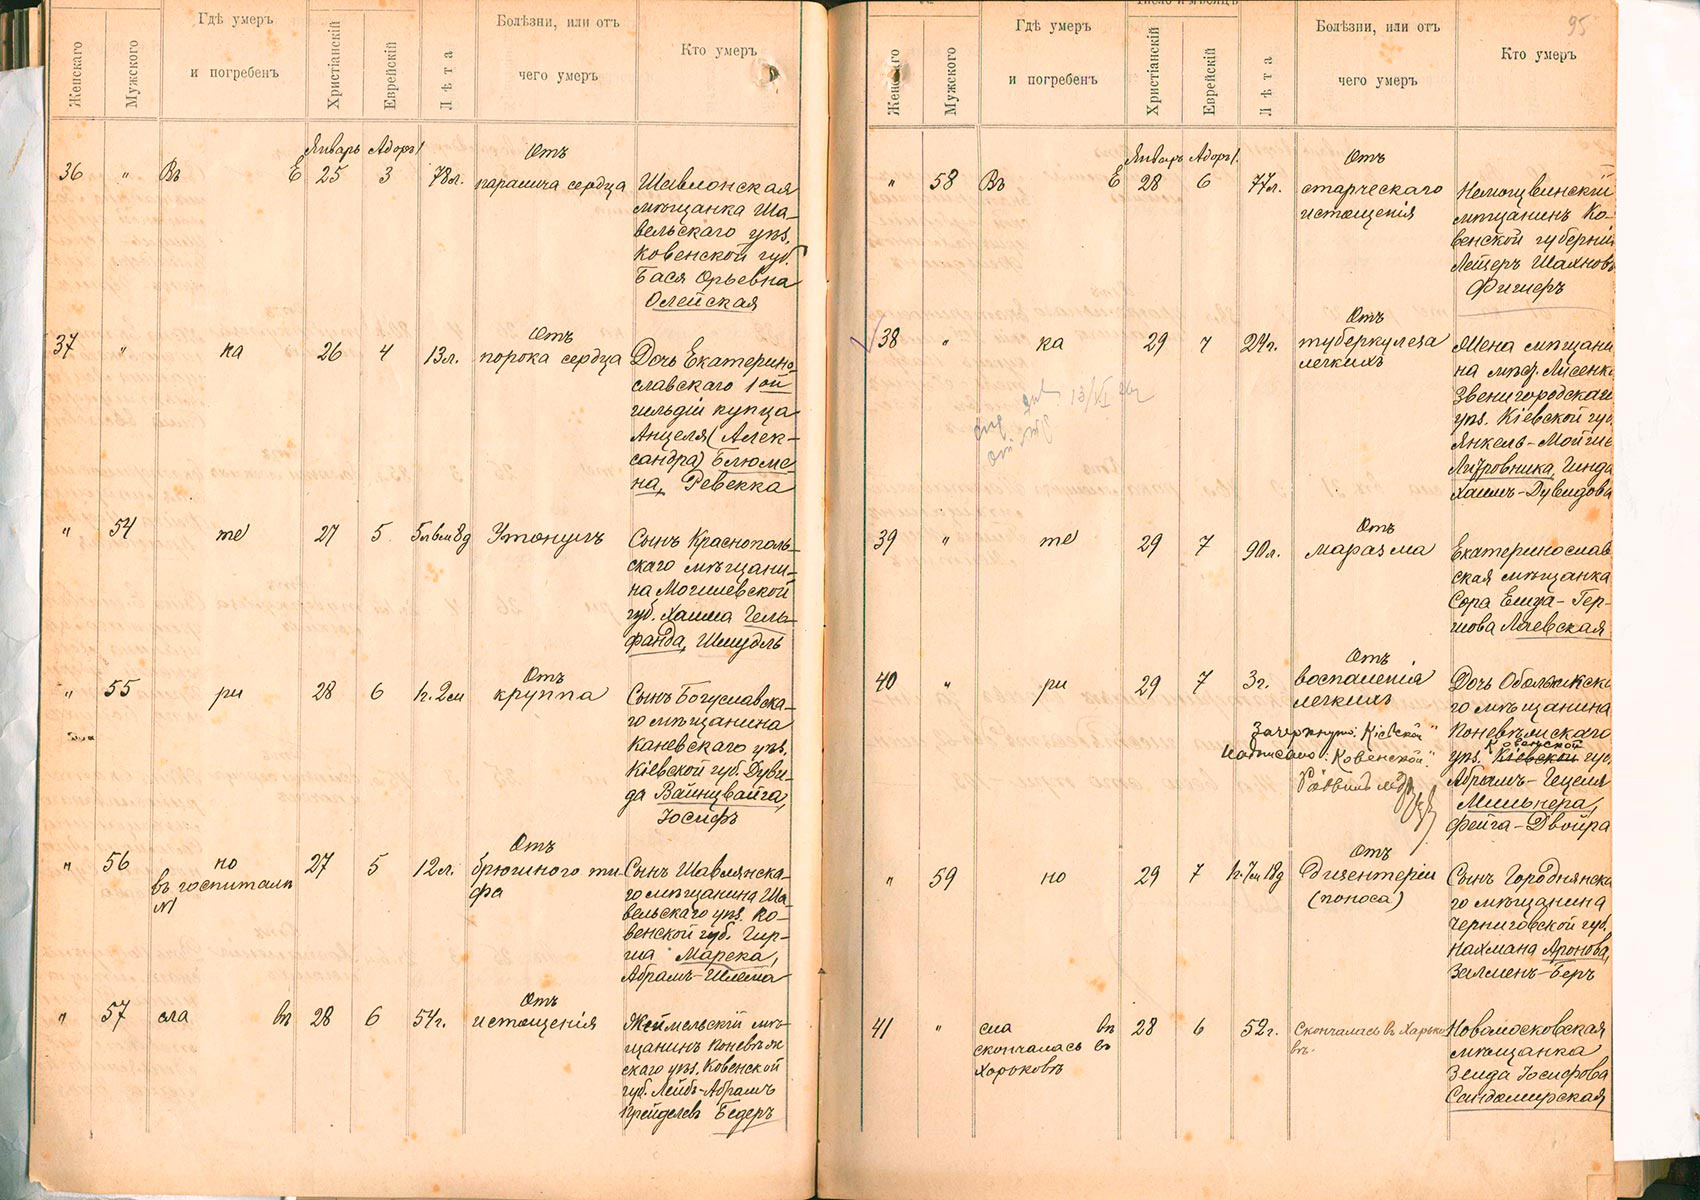 Женскаго
Мужского
Гдѣ умеръ
и погребенъ
Христіанскій
Еврейскій
Лѣта
Болѣзни, или отъ
чего умеръ
Кто умеръ
Январь Адоръ I
36 " Въ Е 25 3 78л.
Отъ
паралича сердца
Шавлонская
мѣщанка Ша-
вельскаго уѣз.
Ковенской губ.
Бася Орьевна
Олейская
37 " ка 26 4 13л.
Отъ
порока сердца
Дочь Екатерино-
славскаго 1ой
гильдіи купца
Анцеля (Алек-
сандра) Блюме-
на, Ревекка
" 54 те 27 5 5л 6м 8д Утонулъ
Сынъ Краснополь-
скаго мѣщани-
на Могилевской
губ. Хаима Гель-
фанда, Шмудль
" 55 ри 28 6 1г. 2м
Отъ
круппа
Сынъ Богуславска-
го мѣщанина
Каневскаго уѣз.
Кіевской губ. Дуви-
да Вайнцвайга,
Іосифъ
" 56 но 27 5 12л.
въ госпиталѣ
№1
Отъ
брюшного ти
фа
Сынъ Шавлянска-
го мѣщанина Ша-
вельскаго уѣз. Ко-
венской губ. Гир-
ша Марека,
Абрамъ-Шлема
" 57 сла въ 28 6 54г.
Отъ
истощенія
Жеймельскій мѣ-
щанинъ Коневѣж
скаго уѣз. Ковенской
губ. Лейбъ-Абрамъ
Крейделевъ Бедеръ
95
Женскаго
Мужского
Гдѣ умеръ
и погребенъ
Число и мѣсяцъ
Христіанскій
Еврейскій
Лѣта
Болѣзни, или отъ
чего умеръ
Кто умеръ
Январь Адоръ I.
" 58 Въ Е 28 6 77л.
Отъ
старческаго
истощенія
мѣщанинъ Ко-
венской губерніи
Лейзеръ Шахновъ
Фишеръ
38 " ка 29 7 24г.
Отъ
туберкулеза
легкихъ
Жена мѣщани
на мѣст. Лисенки
Звенигородскаго
уѣз. Кіевской губ.
Янкель-Мойше
Литровника, Гинда
Хаимъ-Дувидова
39 " те 29 7 90л.
Отъ
маразма
Екатеринослав
ская мѣщанка
Сора Елца-Гер-
шова Лаевская
40 " ри 29 7 3г.
Отъ
воспаленія
легкихъ
Зачеркнуто: "Кіевской"
надписано: "Ковенской".
Раввинъ
Дочь
го мѣщанина
Коневѣжскаго
Ковенской
уѣз. Кіевской губ.
Абрамъ-Гецеля
Мильнера,
Фейга-Двойра
" 59 но 29 7 1г. 7м 18д
Отъ
дизентеріи
(поноса)
Сынъ Городнянска
го мѣщанина
Черниговской губ.
Нахмана Аронова,
Залменъ-Беръ
41 " сла въ 28 6 52г.
скончалась въ
Харьковѣ
Скончалась въ Харько
вѣ.
Новомосковская
мѣщанка
Зелда Іосифова
Сандомирская